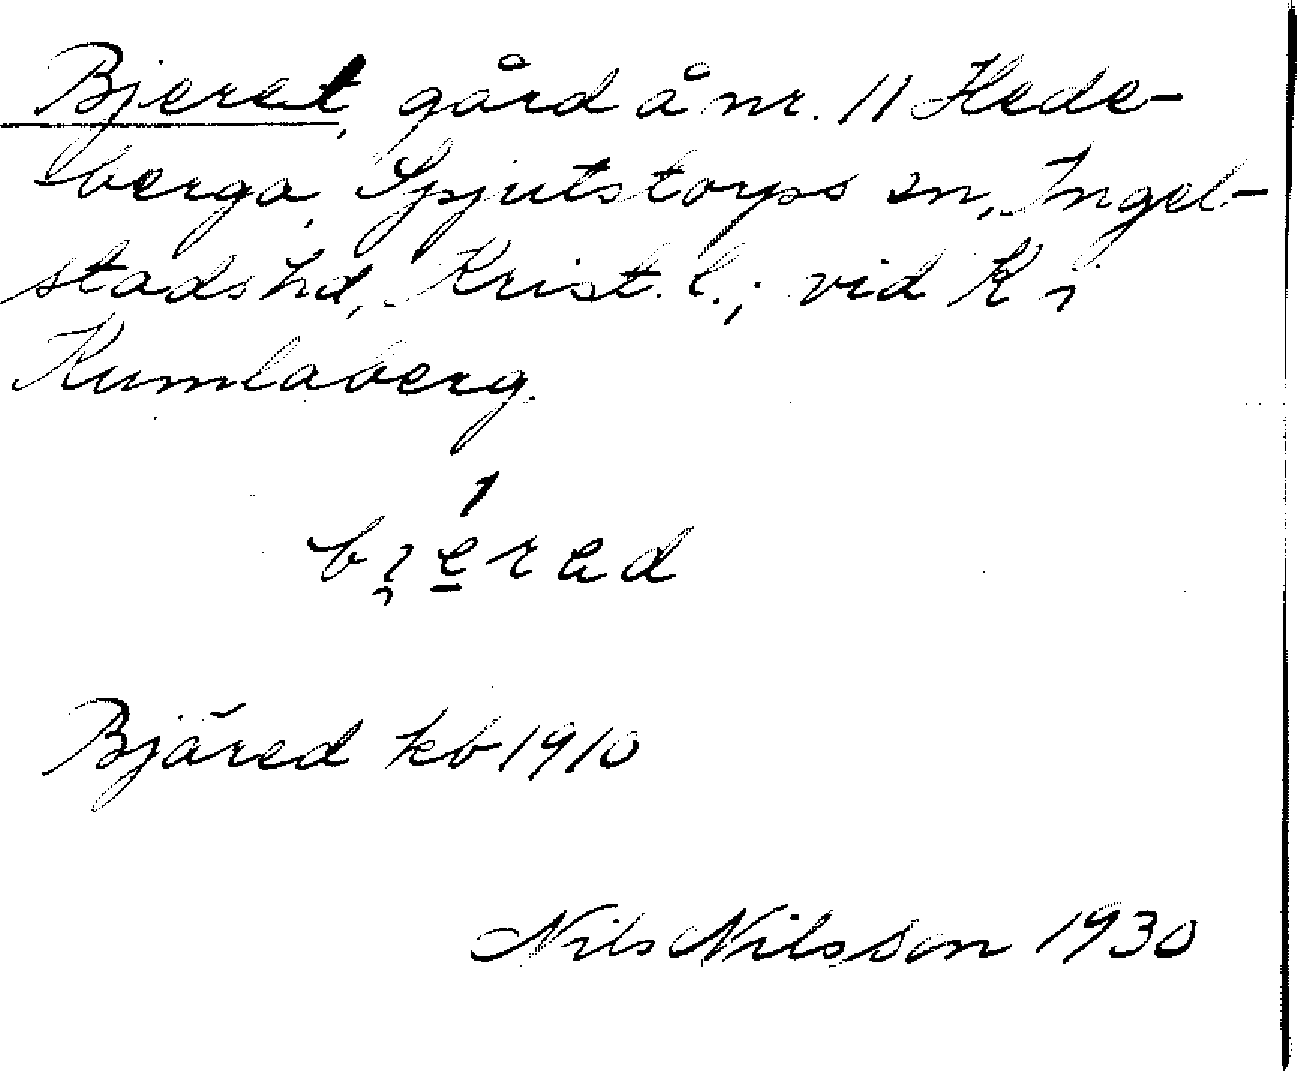 Bjeret, gård å nr. 11 Hede-
berga, Spjutstorps sn, Ingel-
stads hd, Krist. l.; vid K i
Kumlaberg.
1
Bjäred kb 1910
Nils Nilsson 1930